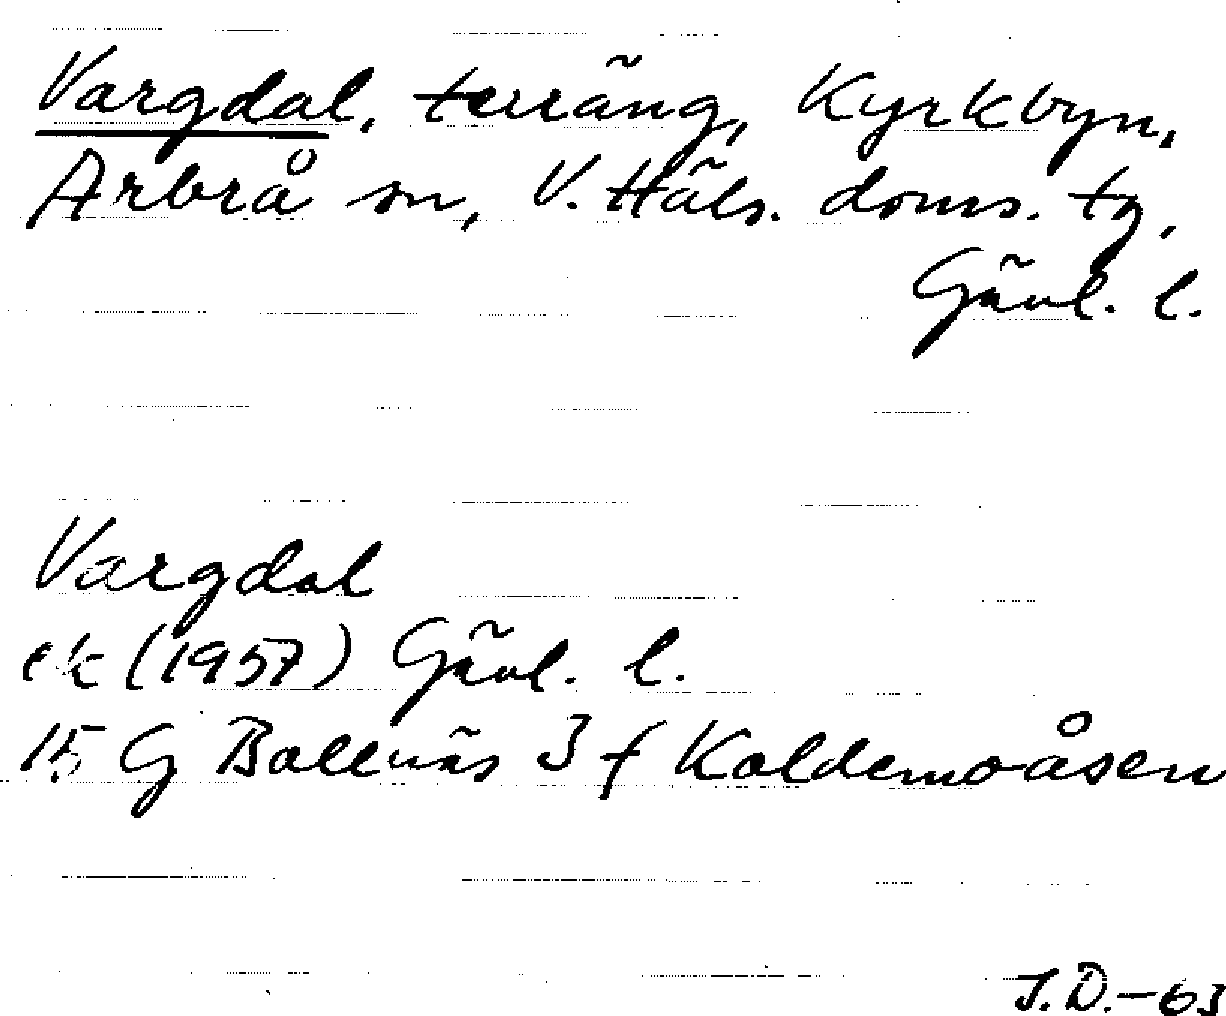 Vargdal, terräng, Kyrkbyn,
Arbrå sn, V. Häls. doms. tg,
Gävl. l.
Vargdal
ek (1957) Gävl. l.
15 G Bollnäs 3 f Koldemoåsen
J.D.-63